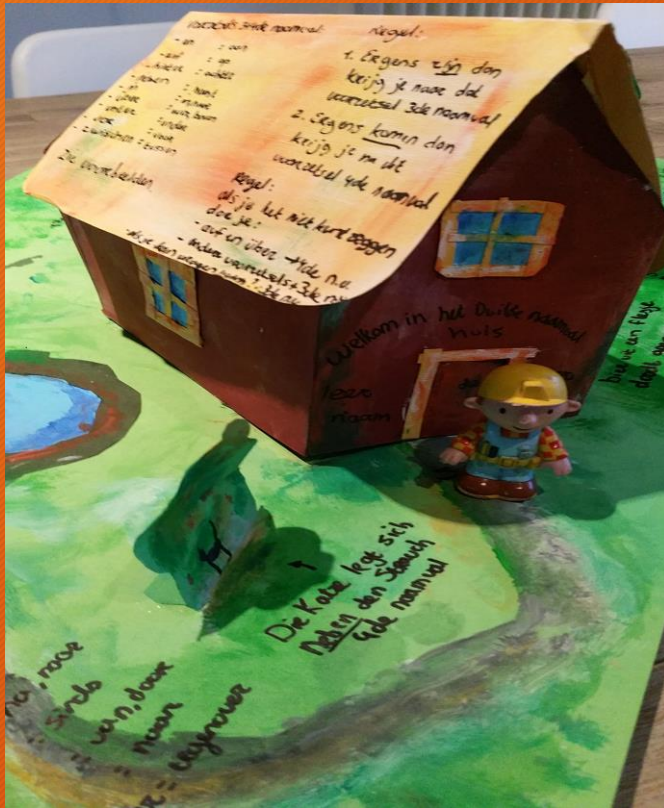 Voorzetsels 3/4de naamval:
- an : aan
- auf : op
- hinter : achter
- neben : naast
- in : in, naar
- über : over, boven
- unter : onder
- vor : voor
- zwischen : tussen
Zie voorbeelden
Regel:
1. Ergens zijn dan
krijg je naar dat
voorzetsel 3de naamval
2. Ergens komen dan
krijg je na dit
voorzetsel 4de naamval
Regel:
als je het niet kunt zeggen
doe je:
- auf en über → 4de n.v.
- andere voorzetsels → 3de
Welkom in het Duitse naamval
huis
Die Katze legt sich
neben den Strauch
4de naamval
, naar
: sinds
: van, door
: naar
: tegenover